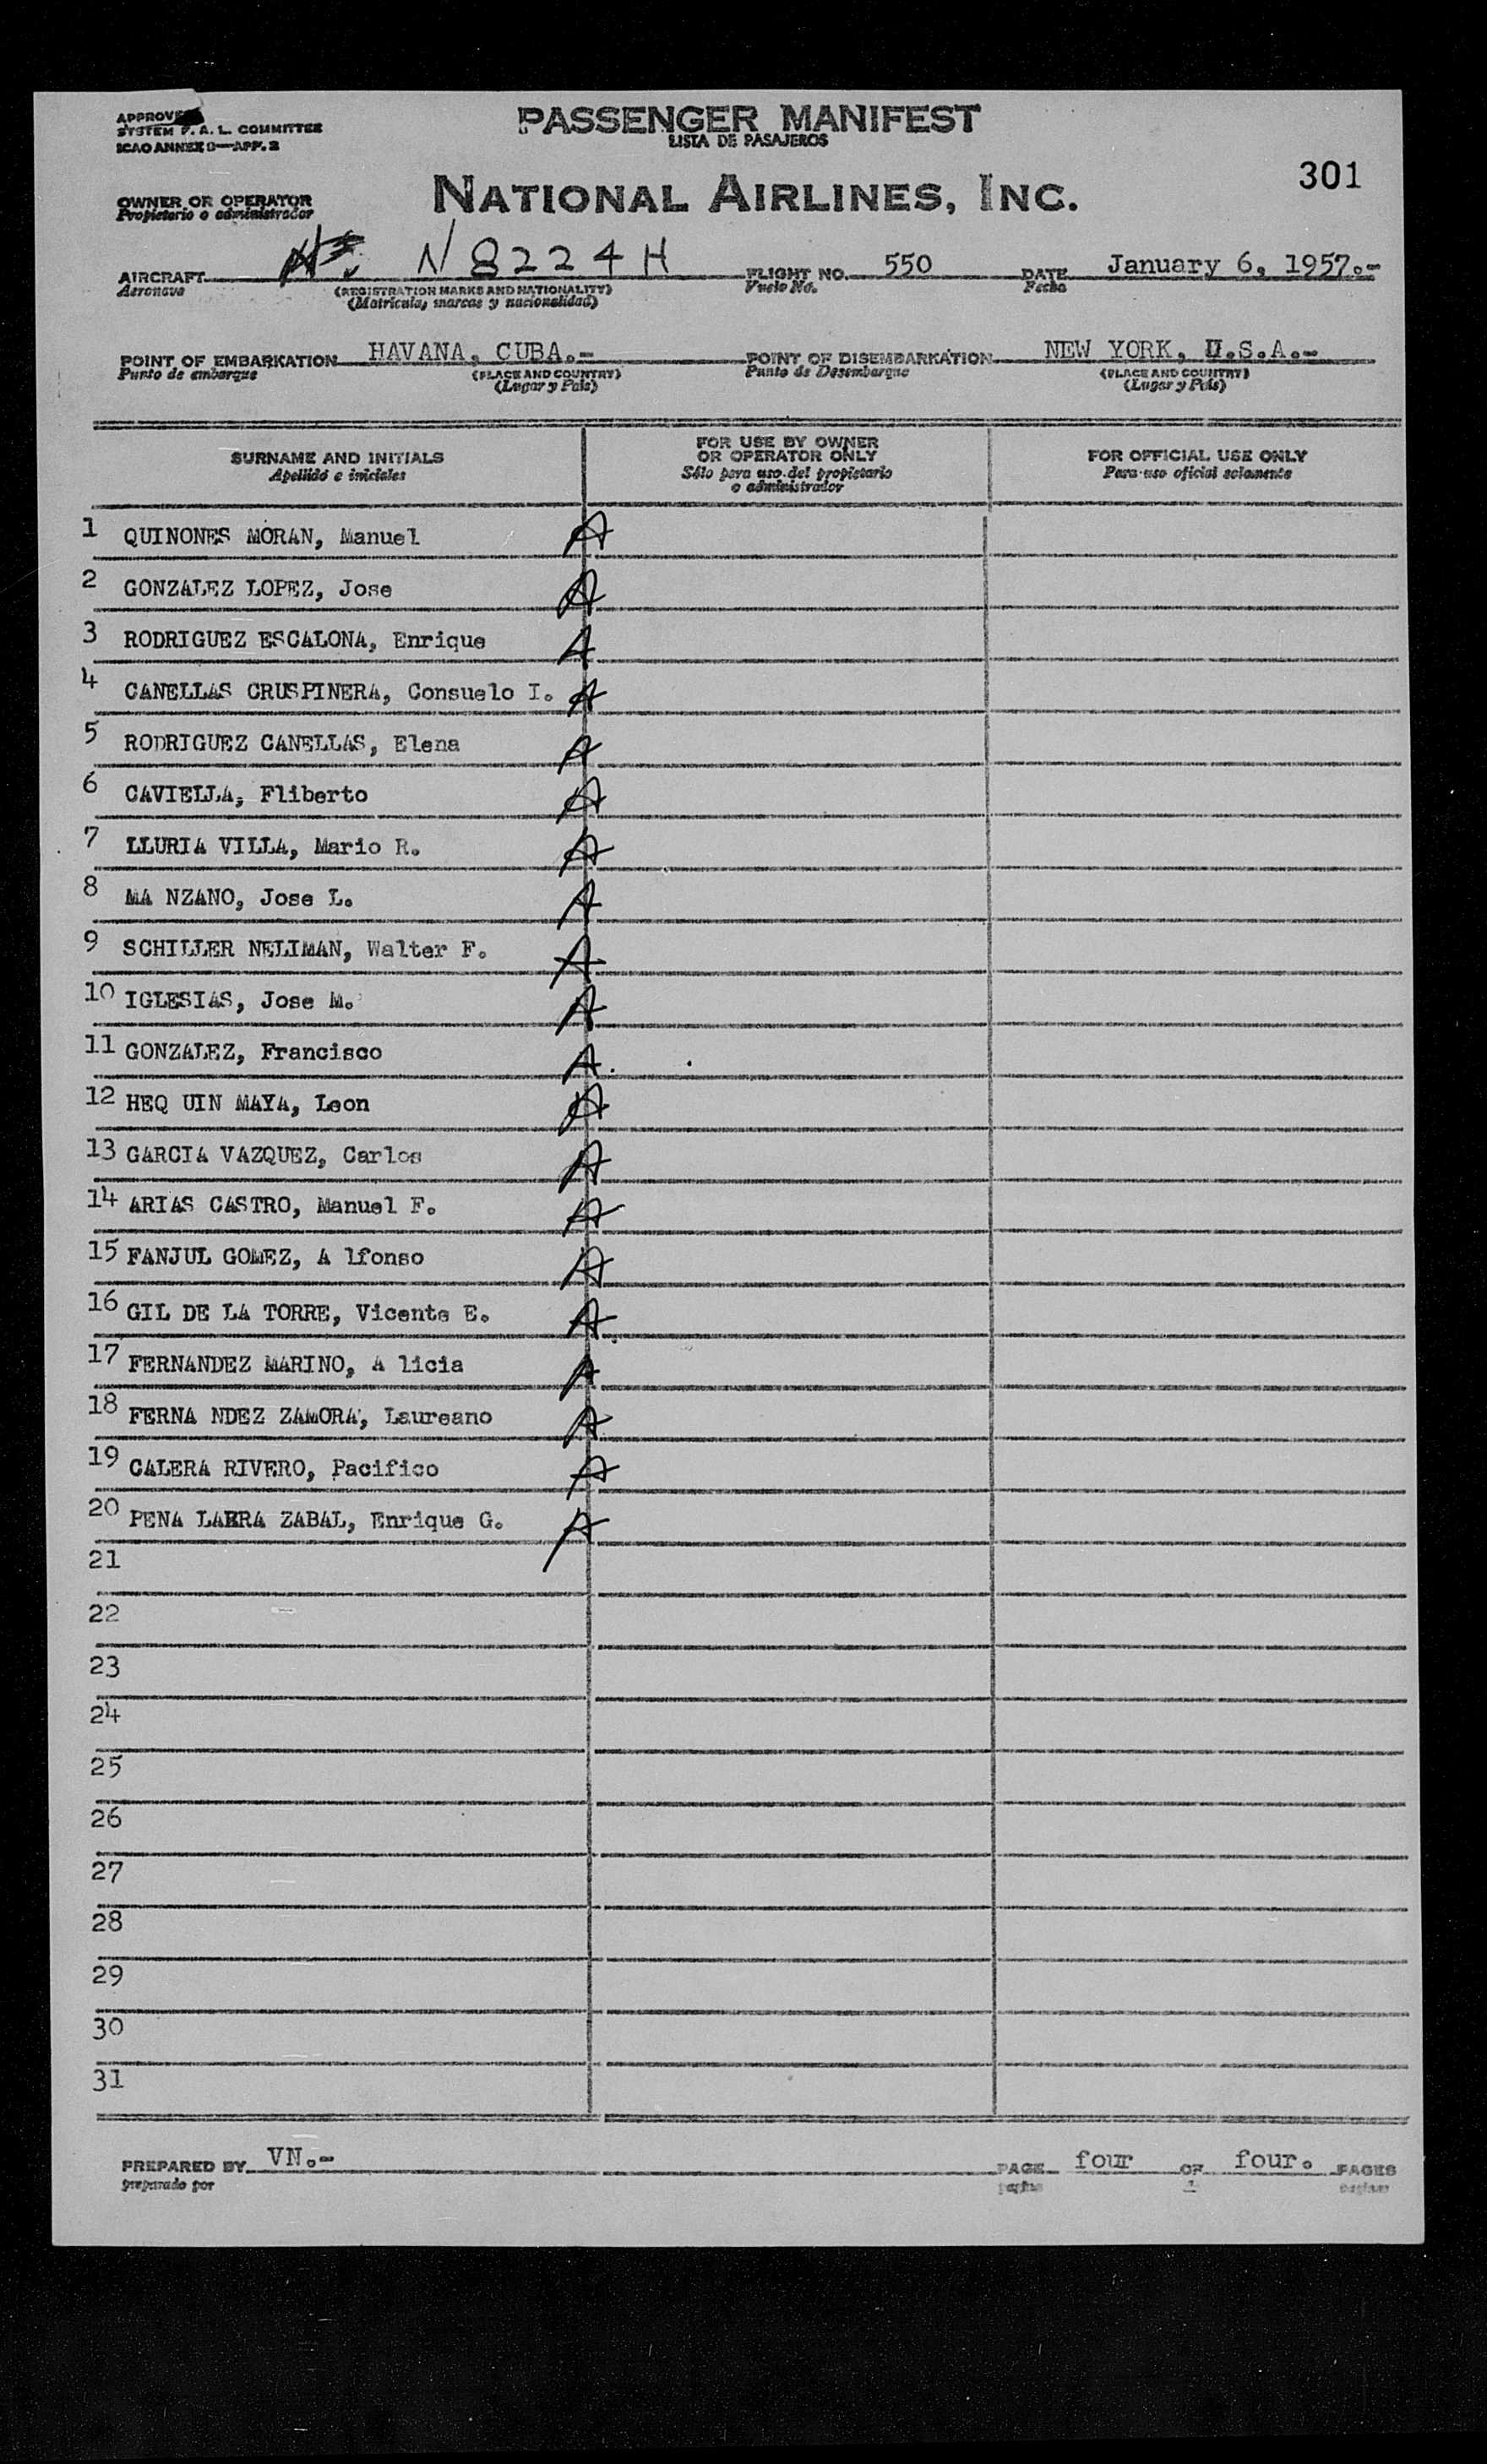 APPROVED
SYSTEM F. A. L. COMMITTEE
ICAO ANNEX 9—APP. 2
PASSENGER MANIFEST
LISTA DE PASAJEROS
301
OWNER OR OPERATOR
Propietario o administrador
NATIONAL AIRLINES, INC.
AIRCRAFT N8224H FLIGHT NO. 550 DATE January 6, 1957.-
Aeronave (REGISTRATION MARKS AND NATIONALITY) Vuelo No. Fecha
(Matricula, marcas y nacionalidad)
POINT OF EMBARKATION HAVANA, CUBA.- POINT OF DISEMBARKATION NEW YORK, U.S.A.-
Punto de embarque (PLACE AND COUNTRY) Punto de Desembarque (PLACE AND COUNTRY)
(Lugar y País) (Lugar y País)
SURNAME AND INITIALS
Apellido e iniciales
FOR USE BY OWNER
OR OPERATOR ONLY
Sólo para uso del propietario
o administrador
FOR OFFICIAL USE ONLY
Para uso oficial solamente
1 QUINONES MORAN, Manuel A
2 GONZALEZ LOPEZ, Jose A
3 RODRIGUEZ ESCALONA, Enrique A
4 CANELLAS CRUSPINERA, Consuelo I. A
5 RODRIGUEZ CANELLAS, Elena A
6 CAVIELLA, Fliberto A
7 LLURIA VILLA, Mario R. A
8 MA NZANO, Jose L. A
9 SCHILLER NELIMAN, Walter F. A
10 IGLESIAS, Jose M. A
11 GONZALEZ, Francisco A
12 HEQ UIN MAYA, Leon A
13 GARCIA VAZQUEZ, Carlos A
14 ARIAS CASTRO, Manuel F. A
15 FANJUL GOMEZ, A lfonso A
16 GIL DE LA TORRE, Vicente E. A
17 FERNANDEZ MARINO, A licia A
18 FERNA NDEZ ZAMORA, Laureano A
19 CALERA RIVERO, Pacifico A
20 PENA LABRA ZABAL, Enrique G. A
21
22
23
24
25
26
27
28
29
30
31
PREPARED BY VN.- PAGE four OF four. PAGES
preparado por pagina de paginas